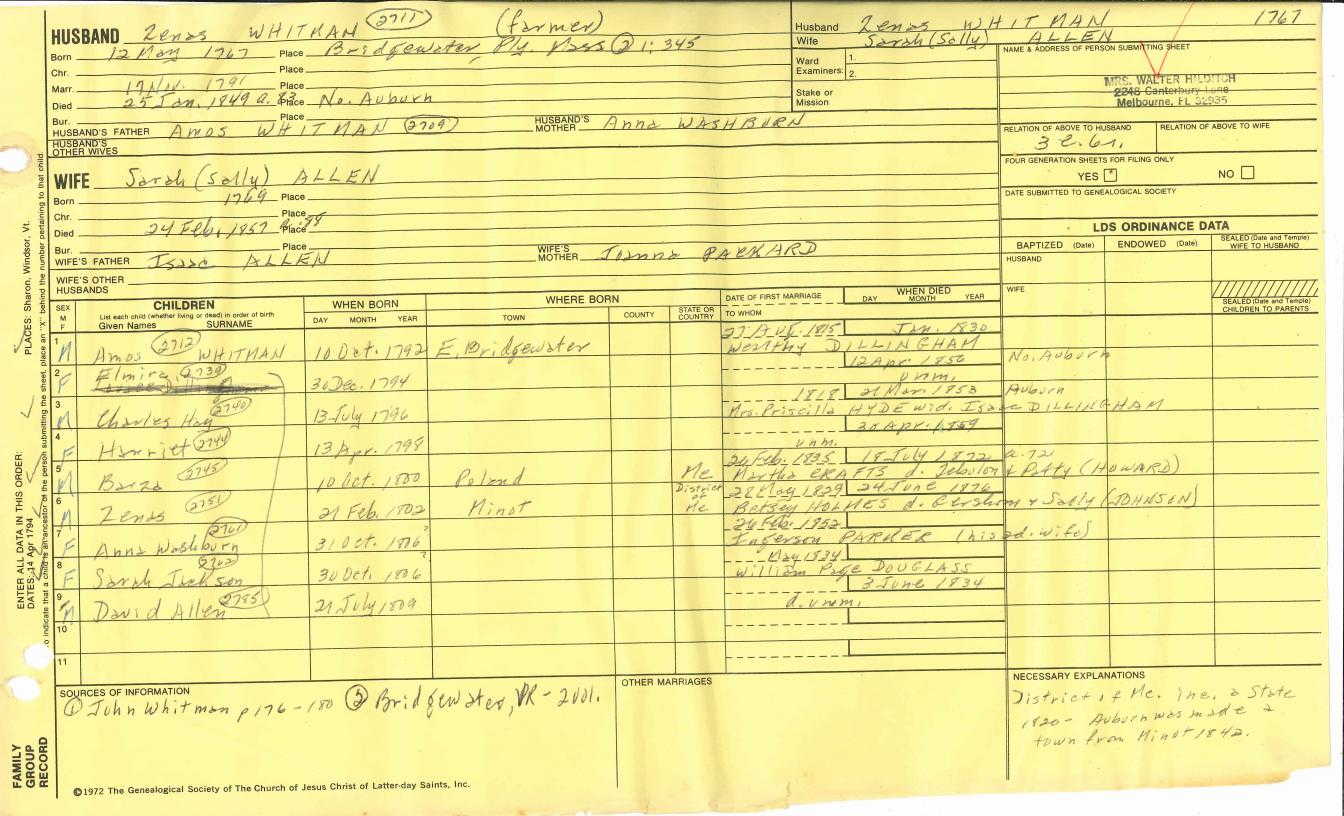 HUSBAND Zenas WHITMAN (2711) (farmer)
Born 12 May 1767 Place Bridgewater, Ply. Mass ② 1:345
Chr. Place
Marr. 1791 Place
Died 25 Jan. 1849 a. 83 Place No. Auburn
Bur. Place
HUSBAND'S FATHER Amos WHITMAN (2709) HUSBAND'S MOTHER Anna WASHBURN
HUSBAND'S OTHER WIVES
WIFE Sarah (Sally) ALLEN
Born 1769 Place
Chr. Place
Died 24 Feb. 1857 a. 88 Place
Bur. Place
WIFE'S FATHER Isaac ALLEN WIFE'S MOTHER Joanna PACKARD
WIFE'S OTHER HUSBANDS
Husband Zenas WHITMAN 1767
Wife Sarah (Sally) ALLEN
Ward Examiners: 1.
2.
Stake or Mission
NAME & ADDRESS OF PERSON SUBMITTING SHEET
MRS. WALTER HILDITCH
2248 Canterbury Lane
Melbourne, FL 32935
RELATION OF ABOVE TO HUSBAND RELATION OF ABOVE TO WIFE
FOUR GENERATION SHEETS FOR FILING ONLY
YES NO
DATE SUBMITTED TO GENEALOGICAL SOCIETY
LDS ORDINANCE DATA
BAPTIZED (Date) ENDOWED (Date) SEALED (Date and Temple) WIFE TO HUSBAND
HUSBAND
WIFE
SEALED (Date and Temple) CHILDREN TO PARENTS
SEX M F CHILDREN WHEN BORN WHERE BORN DATE OF FIRST MARRIAGE WHEN DIED
List each child (whether living or dead) in order of birth
Given Names SURNAME DAY MONTH YEAR TOWN COUNTY STATE OR COUNTRY TO WHOM DAY MONTH YEAR
27 Aug. 1815 Jan. 1830
1 M Amos (2712) WHITMAN 10 Oct. 1792 E. Bridgewater Worthy DILLINGHAM
12 Apr. 1856 No. Auburn
2 F Elmira (2739) 30 Dec. 1794 unm.
1818 21 Mar. 1853 Auburn
3 M Charles Hay (2740) 13 July 1796 Mrs. Priscilla HYDE wid. Isaac DILLINGHAM
30 Apr. 1859
4 F Harriet (2744) 13 Apr. 1798 unm.
26 Feb. 1835 18 July 1872 a. 72
5 M Barza (2745) 10 Oct. 1800 Poland Me Martha CRAFTS d. Zebulon & Patty (HOWARD)
District of 28 May 1829 24 June 1876
6 M Zenas (2751) 21 Feb. 1802 Minot Me Betsey HOLMES d. Gershom & Sally (JOHNSEN)
26 Feb. 1852
7 F Anna Washburn (2761) 31 Oct. 1806? Ingerson PARKER (his 2d. wife)
May 1834
8 F Sarah Jackson 30 Oct. 1806? William Page DOUGLASS
3 June 1834
9 M David Allen (2785) 21 July 1809 d. unm.
10
11
SOURCES OF INFORMATION
① John Whitman p 176-180 ② Bridgewater, VR - 2 vol.
OTHER MARRIAGES
NECESSARY EXPLANATIONS
District of Me. inc. a State
1820 - Auburn was made a
town from Minot 1842.
©1972 The Genealogical Society of The Church of Jesus Christ of Latter-day Saints, Inc.
FAMILY GROUP RECORD
ENTER ALL DATA IN THIS ORDER:
DATES: 14 Apr 1794 PLACES: Sharon, Windsor, Vt.
To indicate that a child is an ancestor of the person submitting the sheet, place an "X" behind the number pertaining to that child.